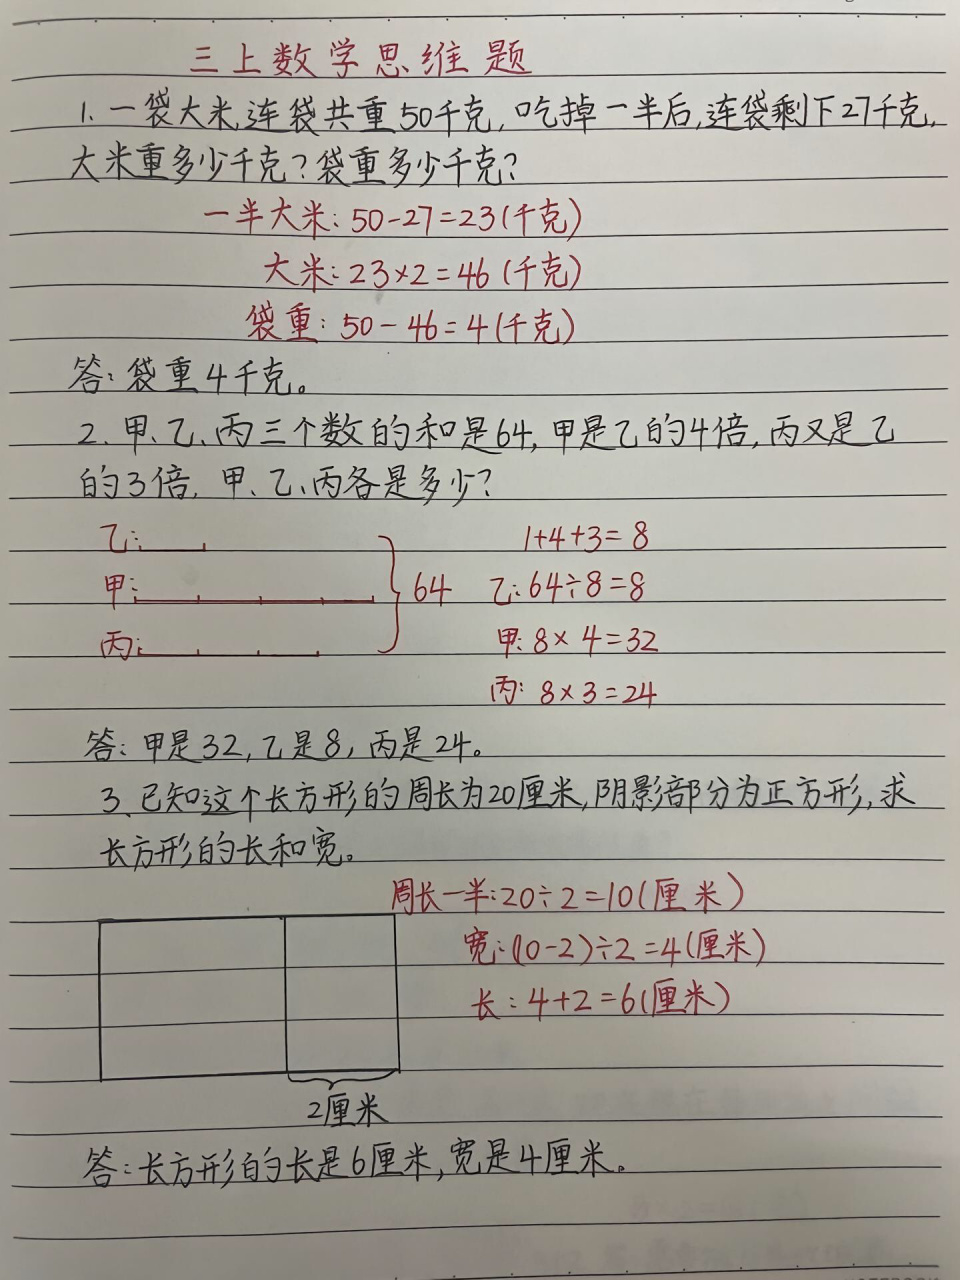 三上数学思维题
1、一袋大米,连袋共重50千克,吃掉一半后,连袋剩下27千克,
大米重多少千克?袋重多少千克?
一半大米:50-27=23(千克)
大米:23×2=46(千克)
袋重:50-46=4(千克)
答:袋重4千克。
2、甲、乙、丙三个数的和是64,甲是乙的4倍,丙又是乙
的3倍,甲、乙、丙各是多少?
乙:
1+4+3=8
甲:
64
乙:64÷8=8
丙:
甲:8×4=32
丙:8×3=24
答:甲是32,乙是8,丙是24。
3、已知这个长方形的周长为20厘米,阴影部分为正方形,求
长方形的长和宽。
周长一半:20÷2=10(厘米)
宽:(10-2)÷2=4(厘米)
长:4+2=6(厘米)
2厘米
答:长方形的长是6厘米,宽是4厘米。